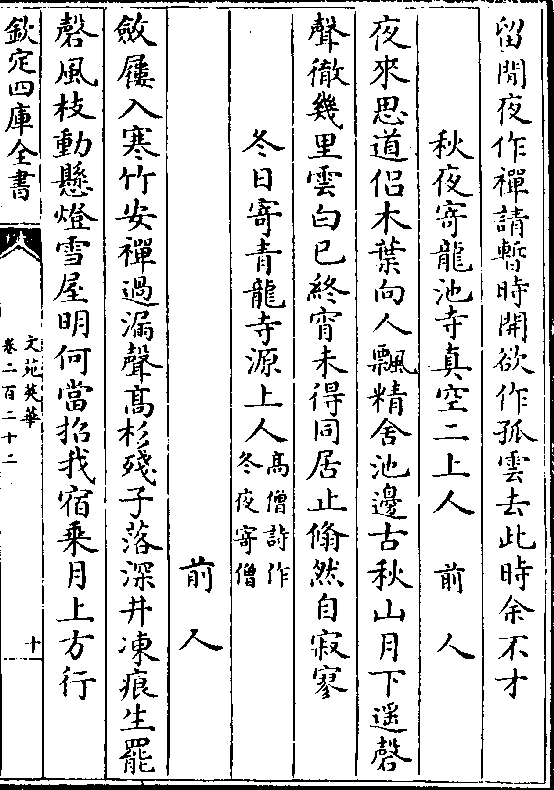 留閒夜作禪請暫時開欲作孤雲去此時余不才
秋夜寄龍池寺真空二上人 前人
夜來思道侶木葉向人飄精舍池邊古秋山月下遥磬
聲徹幾里雲白已終宵未得同居止翛然自寂寥
冬日寄青龍寺源上人
高僧詩作
冬夜寄僧
前人
斂屨入寒竹安禪過漏聲髙杉殘子落深井凍痕生罷
磬風枝動懸燈雪屋明何當招我宿乘月上方行
欽定四庫全書
文苑英華
卷二百二十二
十